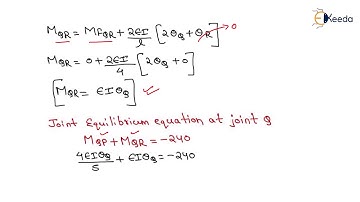 Ekeeda
M_QR = MF_QR + 2EI/l [2θ_Q + θ_R] → 0
M_QR = 0 + 2EI/4 [2θ_Q + 0]
[M_QR = EIθ_Q] ✓
Joint Equilibrium equation at joint Q
M_QP + M_QR = -240
4EIθ_Q/5 + EIθ_Q = -240